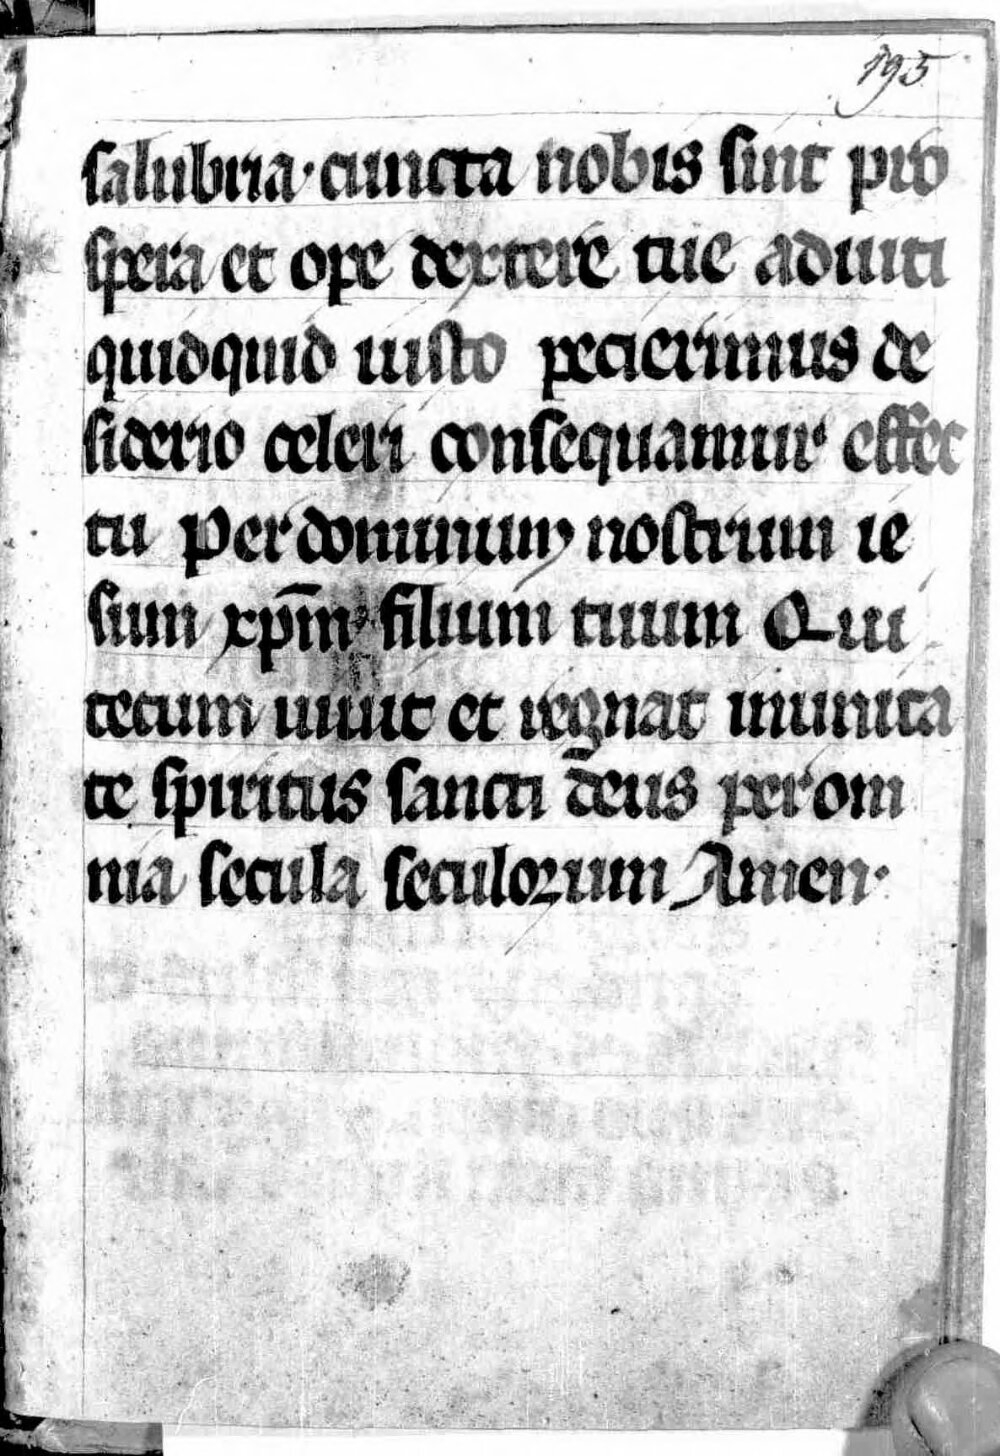 195
salubria · cuncta nobis sint pro
spera et ope dextere tue adiuti
quidquid iusto pecierimus de
siderio celeri consequamur effec
tu Per dominum nostrum ie
sum xp̄m filium tuum Qui
tecum uiuit et regnat inunita
te spiritus sancti deus per om
nia secula seculorum Amen ·